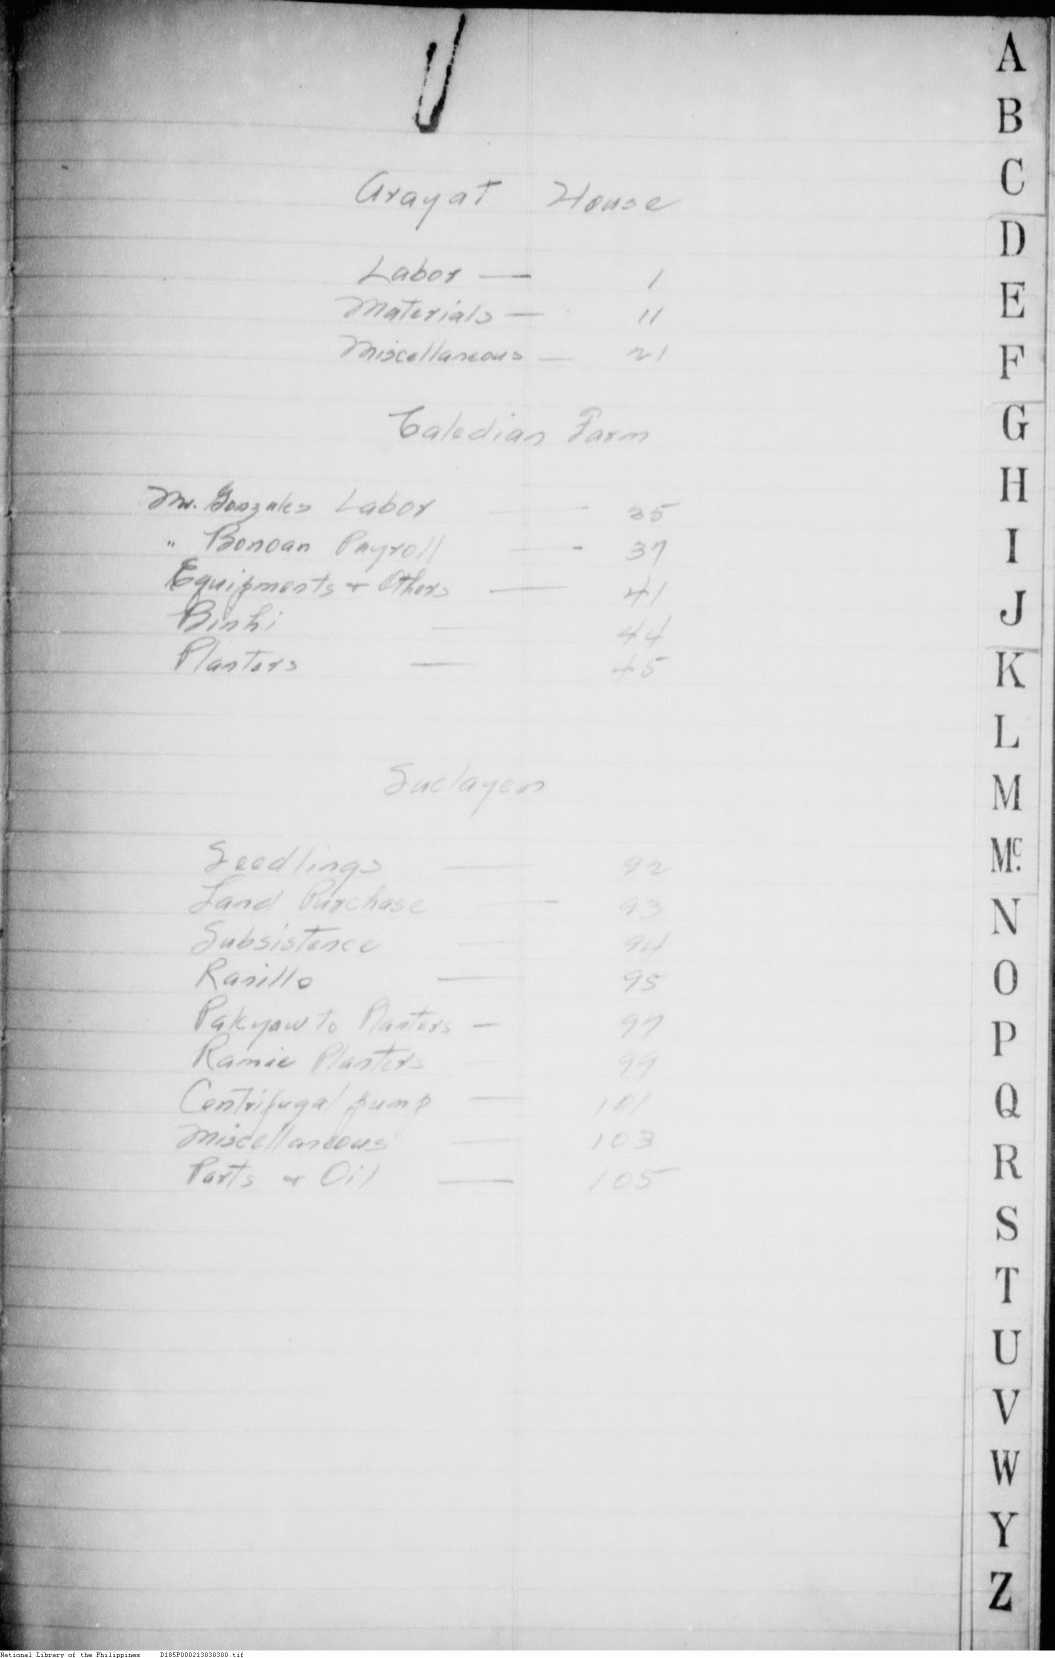 Arayat House
Labor — 1
Materials — 11
Miscellaneous — 21
Caledian Farm
Mr. Gonzales Labor — 35
" Bonoan Payroll — 37
Equipments & Others — 41
Binhi — 44
Planters — 45
Suclayen
Seedlings — 92
Land Purchase — 93
Subsistence — 94
Rasillo — 95
Pakyaw to Planters — 97
Ramie Planters — 99
Centrifugal pump — 101
Miscellaneous — 103
Parts & Oil — 105
A
B
C
D
E
F
G
H
I
J
K
L
M
Mc.
N
O
P
Q
R
S
T
U
V
W
Y
Z
National Library of the Philippines D185P000213030300.tif